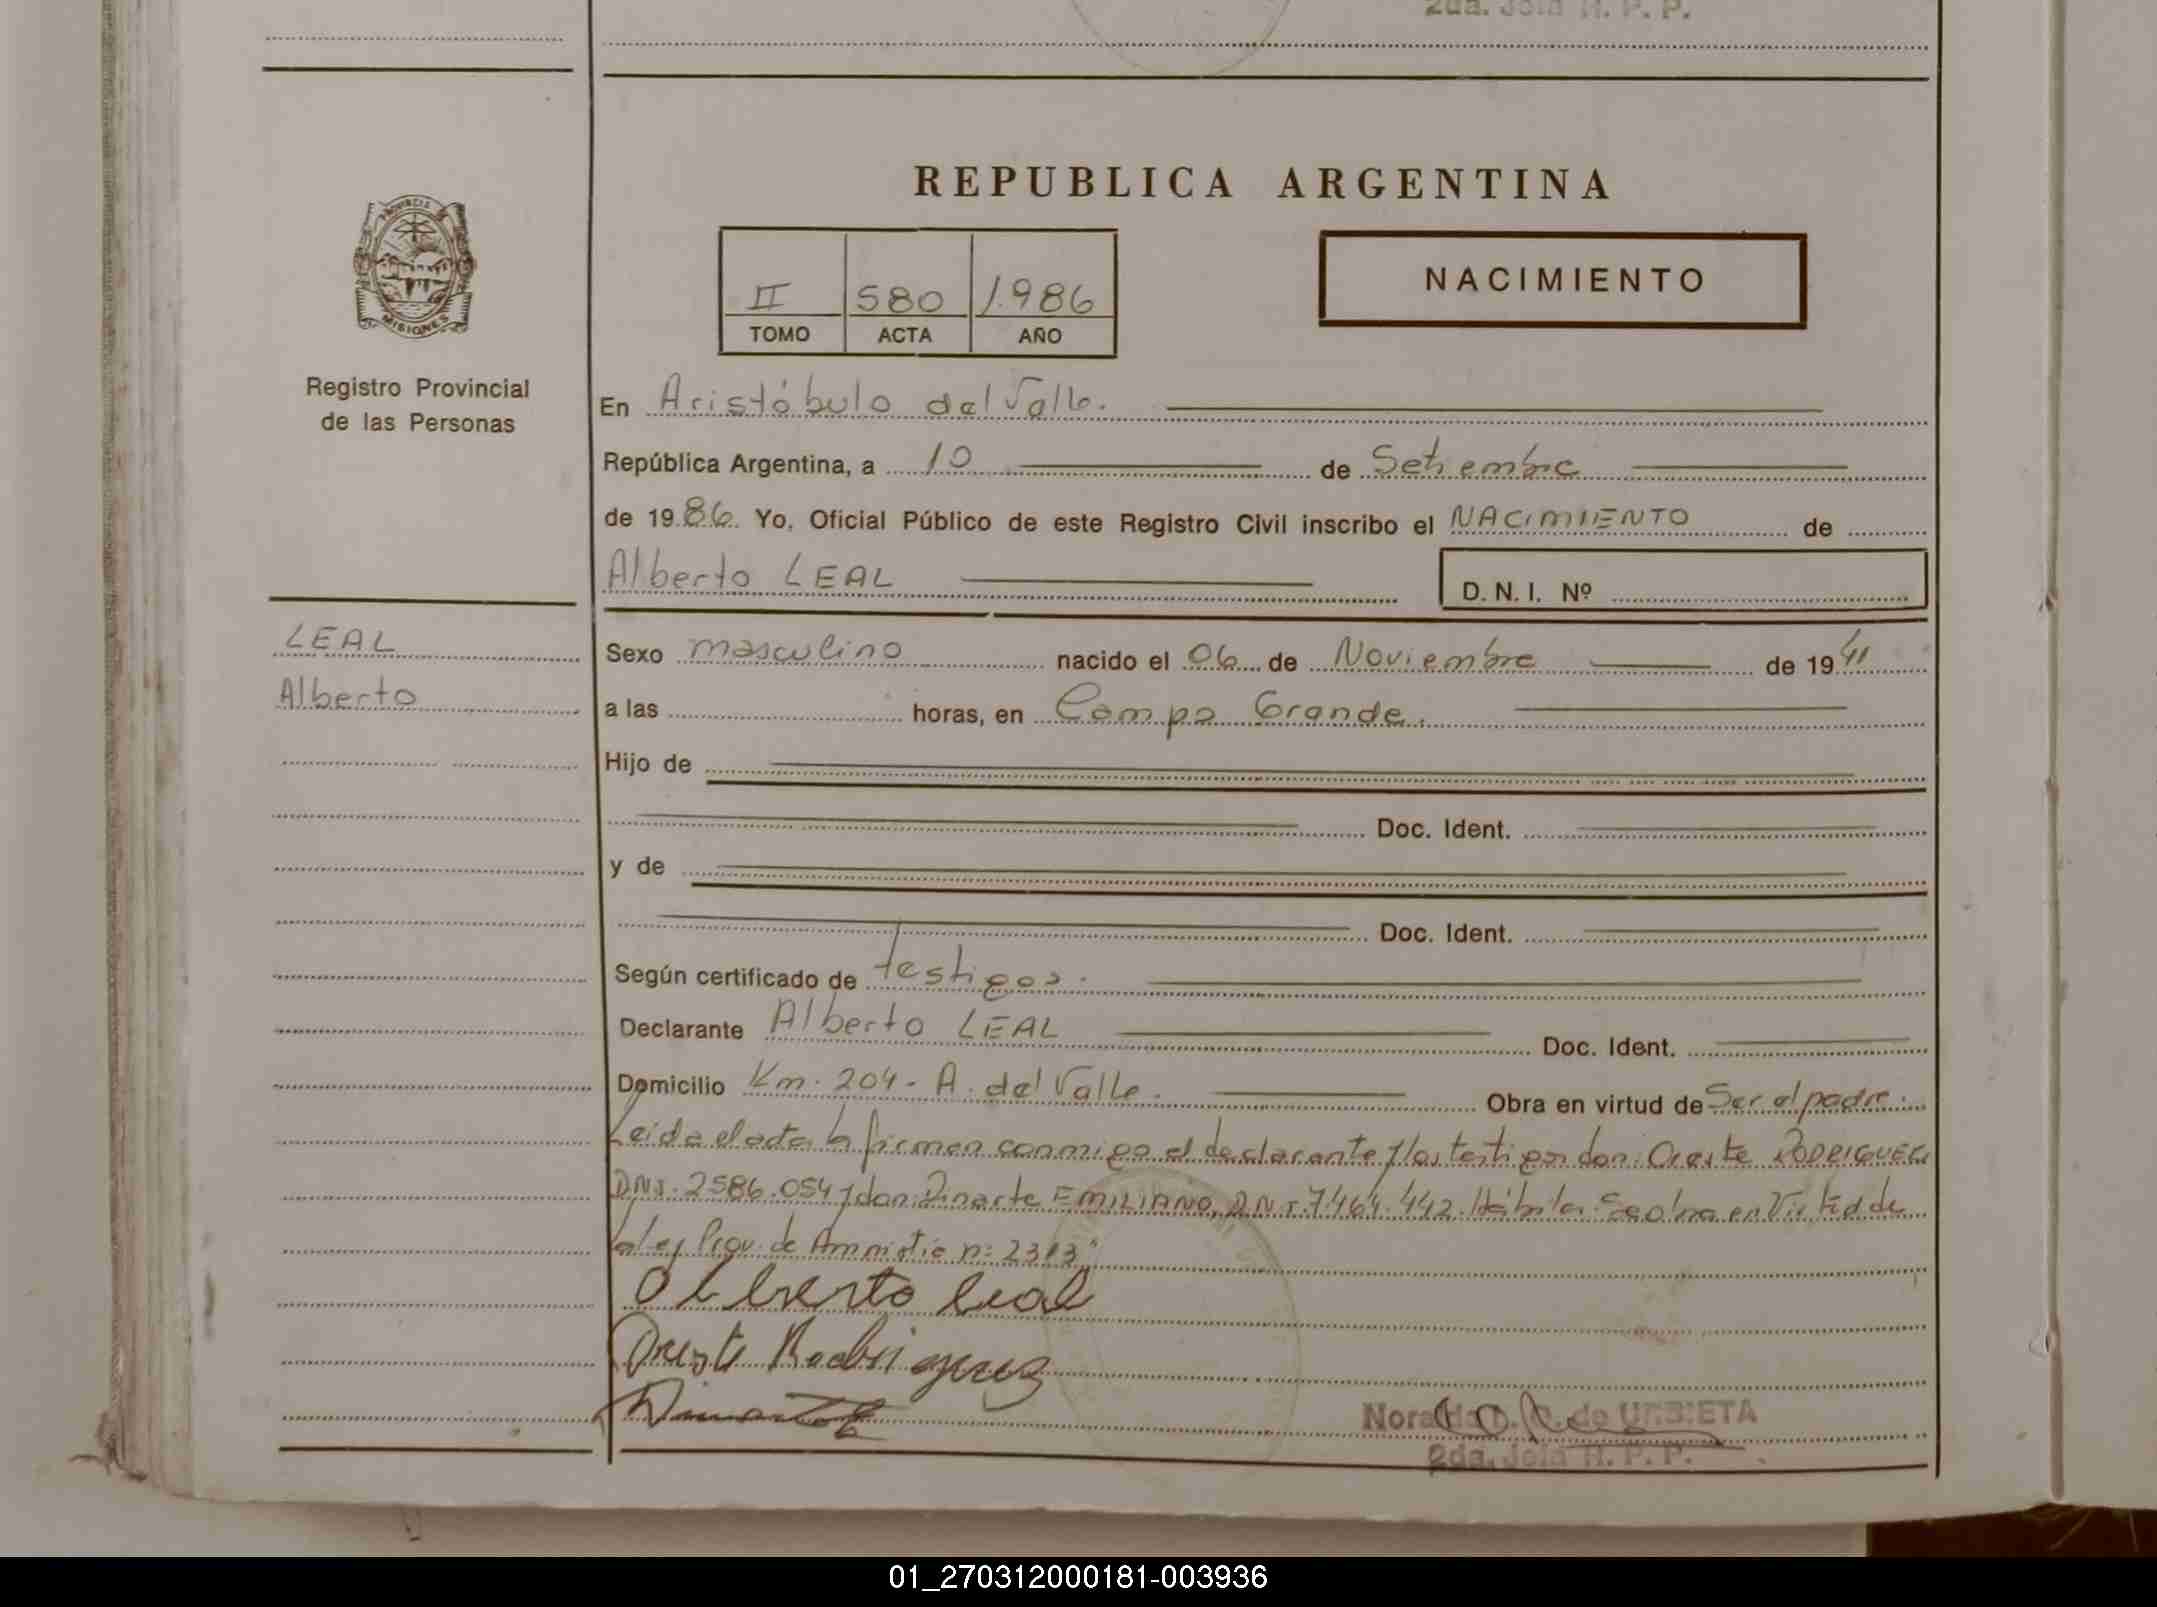 2da. Jefa R. P. P.
REPUBLICA ARGENTINA
PROVINCIA DE
MISIONES
Registro Provincial
de las Personas
II 580 1.986
TOMO ACTA AÑO
NACIMIENTO
En Aristóbulo del Valle.
República Argentina, a 10 de Setiembre
de 1986. Yo, Oficial Público de este Registro Civil inscribo el NACIMIENTO de
Alberto LEAL D. N. I. Nº
LEAL
Alberto
Sexo masculino nacido el 06 de Noviembre de 1941
a las horas, en Campo Grande.
Hijo de
Doc. Ident.
y de
Doc. Ident.
Según certificado de testigos.
Declarante Alberto LEAL Doc. Ident.
Domicilio Km. 204 - A. del Valle. Obra en virtud de Ser el padre.
Leida el acta la firman conmigo el declarante y los testigos don: Oreste RODRIGUEZ
DNI. 2586.054 y don Dinarte EMILIANO, DNI. 7.464.442. Se obra en Virtud de
la ley Prov. de Amnistia nº 2313"
Alberto Leal
Oreste Rodriguez
Dinarte
Nora de URBIETA
2da. Jefa R. P. P.
01_270312000181-003936